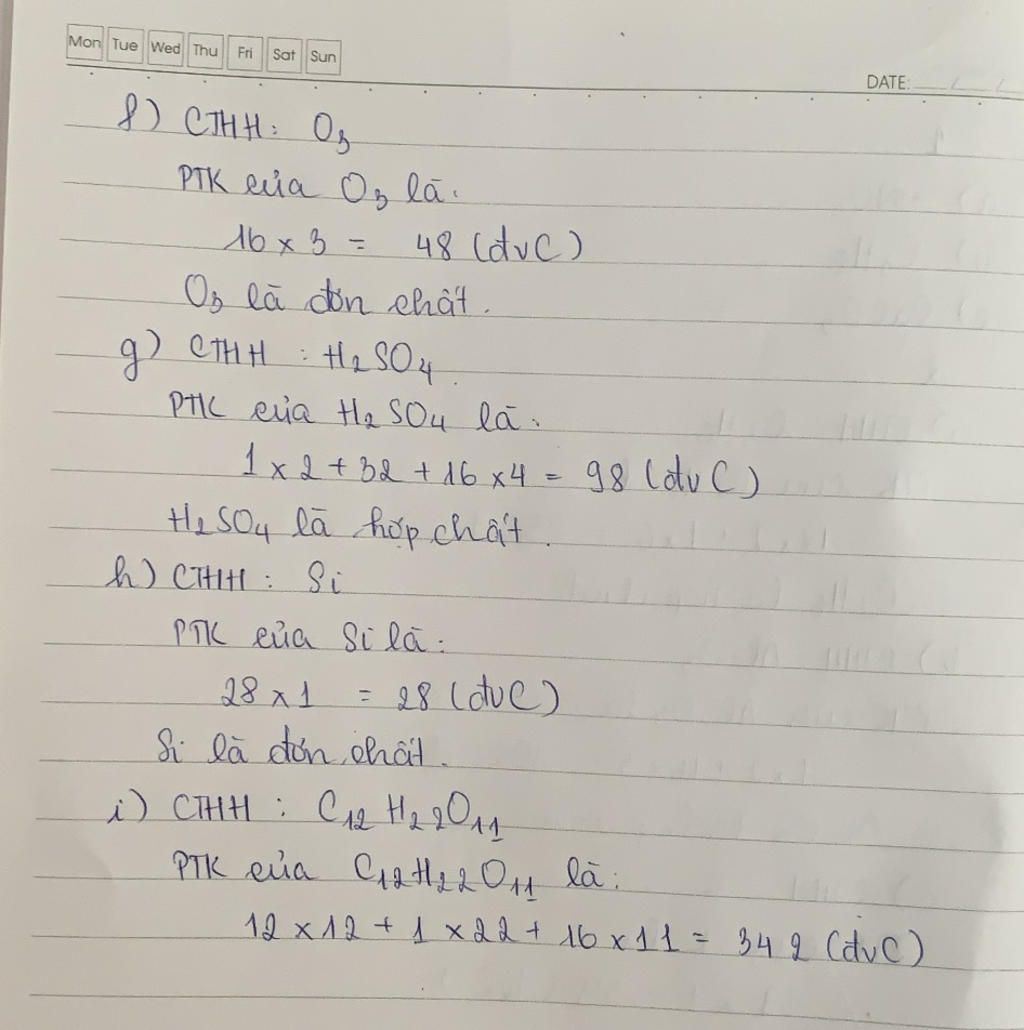 Mon Tue Wed Thu Fri Sat Sun
DATE:
f) CTHH: O₃
PTK của O₃ là:
16 x 3 = 48 (đvC)
O₃ là đơn chất.
g) CTHH : H₂SO₄.
PTK của H₂SO₄ là:
1 x 2 + 32 + 16 x 4 = 98 (đvC)
H₂SO₄ là hợp chất.
h) CTHH : Si
PTK của Si là:
28 x 1 = 28 (đvC)
Si là đơn chất.
i) CTHH : C₁₂H₂₂O₁₁
PTK của C₁₂H₂₂O₁₁ là:
12 x 12 + 1 x 22 + 16 x 11 = 342 (đvC)